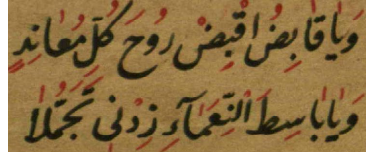 وَيَا قَابِضُ اقْبِضْ رُوحَ كُلِّ مُعَانِدٍ
وَيَا بَاسِطَ النَّعْمَآءِ زِدْنِى تَجَمُّلَا